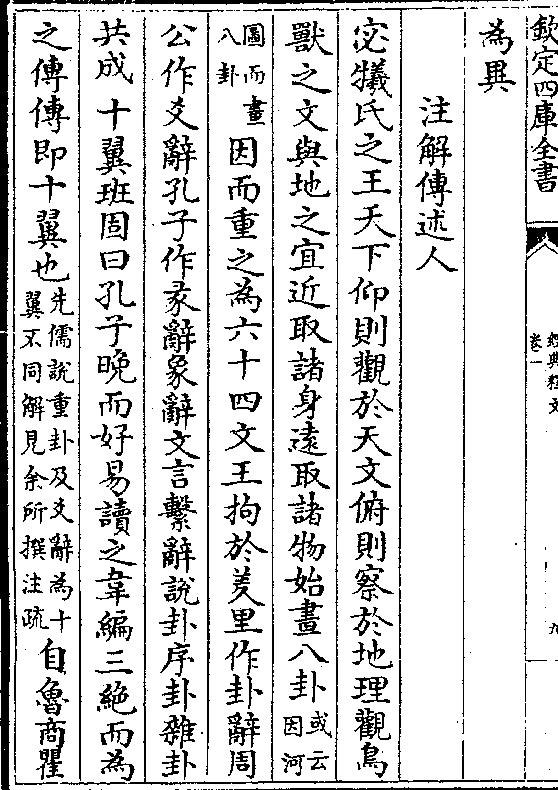 欽定四庫全書
經典釋文
卷一
九
為異
注解傳述人
宓犧氏之王天下仰則觀於天文俯則察於地理觀鳥
獸之文與地之宜近取諸身遠取諸物始畫八卦或云因河
圖而畫八卦因而重之為六十四文王拘於羑里作卦辭周
公作爻辭孔子作彖辭象辭文言繫辭說卦序卦雜卦
共成十翼班固曰孔子晚而好易讀之韋編三絶而為
之傳傳即十翼也先儒說重卦及爻辭為十翼不同解見余所撰注疏自魯商瞿